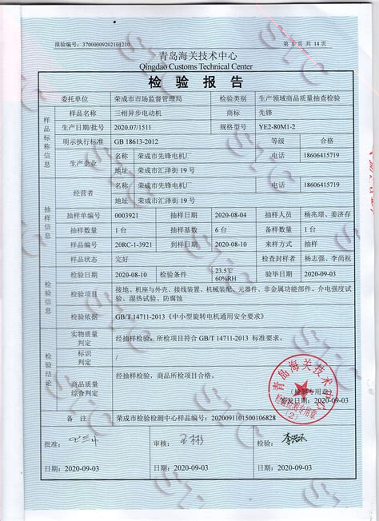 青岛海关技术中心
Qingdao Customs Technical Center
检 验 报 告
委托单位 荣成市市场监督管理局 检验类别 生产领域商品质量抽查检验
样品名称 三相异步电动机 商标 先锋
生产日期/批号 2020.07/1511 规格型号 YE2-80M1-2
明示执行标准 GB 18613-2012 等级 合格
生产企业 名称 荣成市先锋电机厂 电话 18606415719
地址 荣成市汇泽街 19 号
经营者 名称 荣成市先锋电机厂 电话 18606415719
地址 荣成市汇泽街 19 号
抽样单编号 0003921 抽样日期 2020-08-04 抽样人员
抽样数量 1 台 抽样基数 6 台 备样数量 1 台
样品编号 20RC-1-3921 到样日期 2020-08-10 来样方式 抽样
样品状态 完好 检查封样者
检验日期 2020-08-10 检验条件 23.5℃ 60%RH 验毕日期 2020-09-03
检验项目 接地、机座与外壳、接线装置、机械装配、元器件、非金属功能部件、介电强度试
验、湿热试验、防腐蚀
检验依据 GB/T 14711-2013《中小型旋转电机通用安全要求》
实物质量判定 经抽样检验，所检项目符合 GB/T 14711-2013 标准要求。
标识判定 /
商品质量综合判定 经抽样检验，商品所检项目合格。
签发日期：2020-09-03
备 注 荣成市检验检测中心样品编号：2020091101500106828
批准： 审核： 检验：
日期：2020-09-03 日期：2020-09-03 日期：2020-09-03